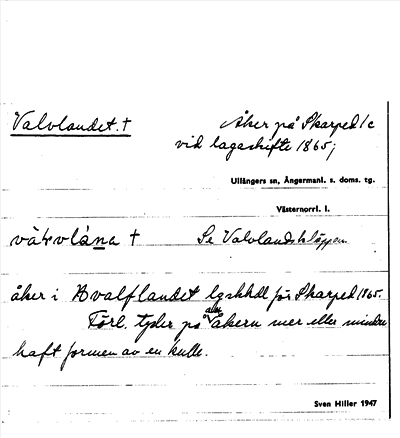 Valvlandet. †
Åker på Skarped 1c
vid lagaskifte 1865;
Ullångers sn, Ångermanl. s. doms. tg.
Västernorrl. l.
Se Valvlandsklöppen
åker i Hvalflandet lgskhdl för Skarped 1865.
Förl. tyder på att åkern mer eller mindre
haft formen av en kulle.
Sven Hiller 1947